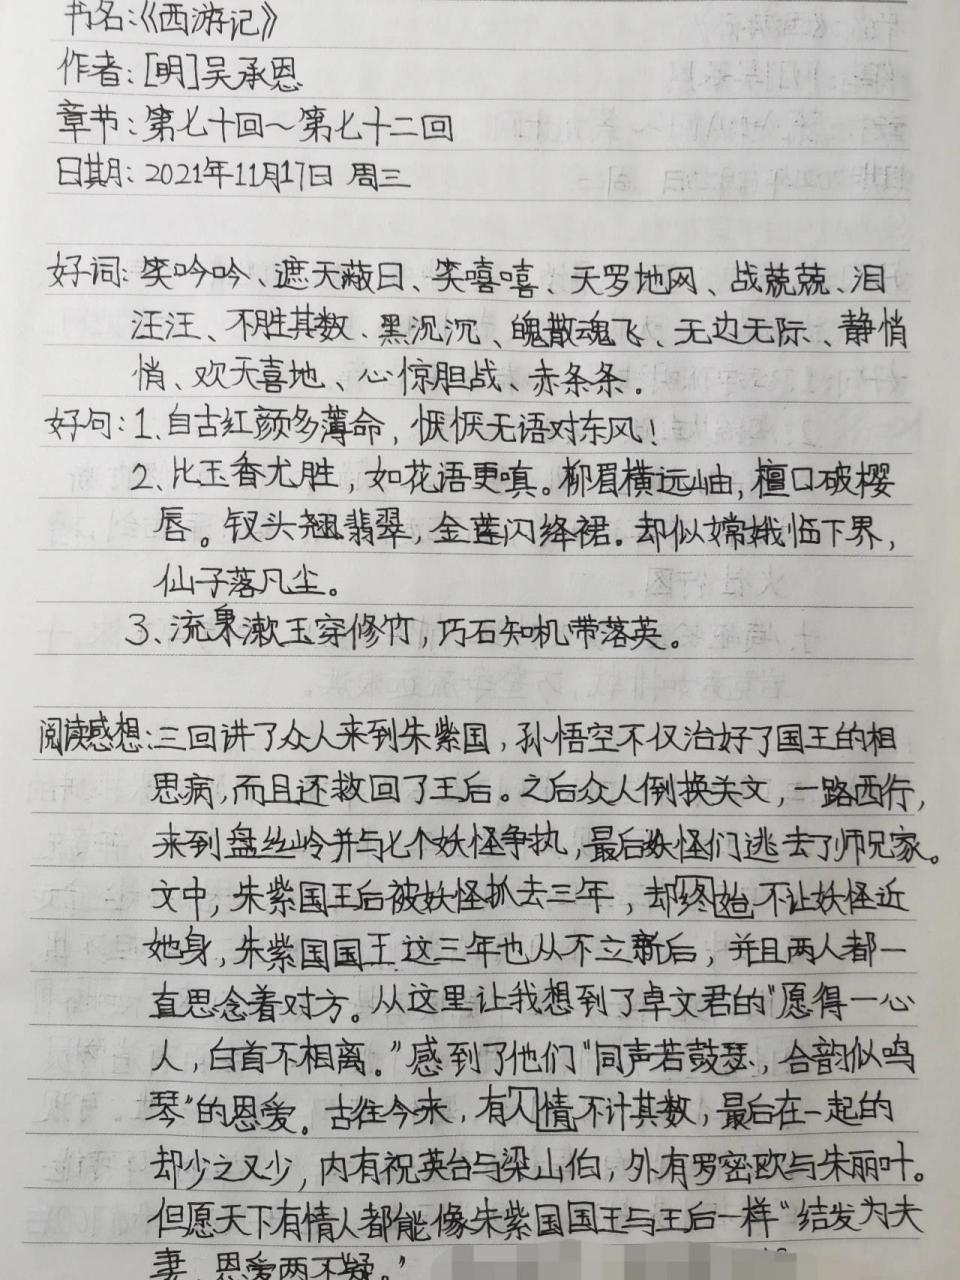 书名:《西游记》
作者:[明]吴承恩
章节:第七十回~第七十二回
日期:2021年11月17日 周三
好词:笑吟吟、遮天蔽日、笑嘻嘻、天罗地网、战兢兢、泪
汪汪、不胜其数、黑沉沉、魄散魂飞、无边无际、静悄
悄、欢天喜地、心惊胆战、赤条条。
好句:1、自古红颜多薄命,恹恹无语对东风!
2、比玉香尤胜,如花语更嗔。柳眉横远岫,檀口破樱
唇。钗头翘翡翠,金莲闪绛裙。却似嫦娥临下界,
仙子落凡尘。
3、流泉漱玉穿修竹,巧石知机带落英。
阅读感想:三回讲了众人来到朱紫国,孙悟空不仅治好了国王的相
思病,而且还救回了王后。之后众人倒换关文,一路西行,
来到盘丝岭并与七个妖怪争执,最后妖怪们逃去了师兄家。
文中,朱紫国王后被妖怪抓去三年,却终始不让妖怪近
她身,朱紫国国王这三年也从不立新后,并且两人都一
直思念着对方。从这里让我想到了卓文君的"愿得一心
人,白首不相离。"感到了他们"同声若鼓瑟,合韵似鸣
琴"的恩爱。古往今来,有人情不计其数,最后在一起的
却少之又少,内有祝英台与梁山伯,外有罗密欧与朱丽叶。
但愿天下有情人都能像朱紫国国王与王后一样"结发为夫
妻,恩爱两不疑。"